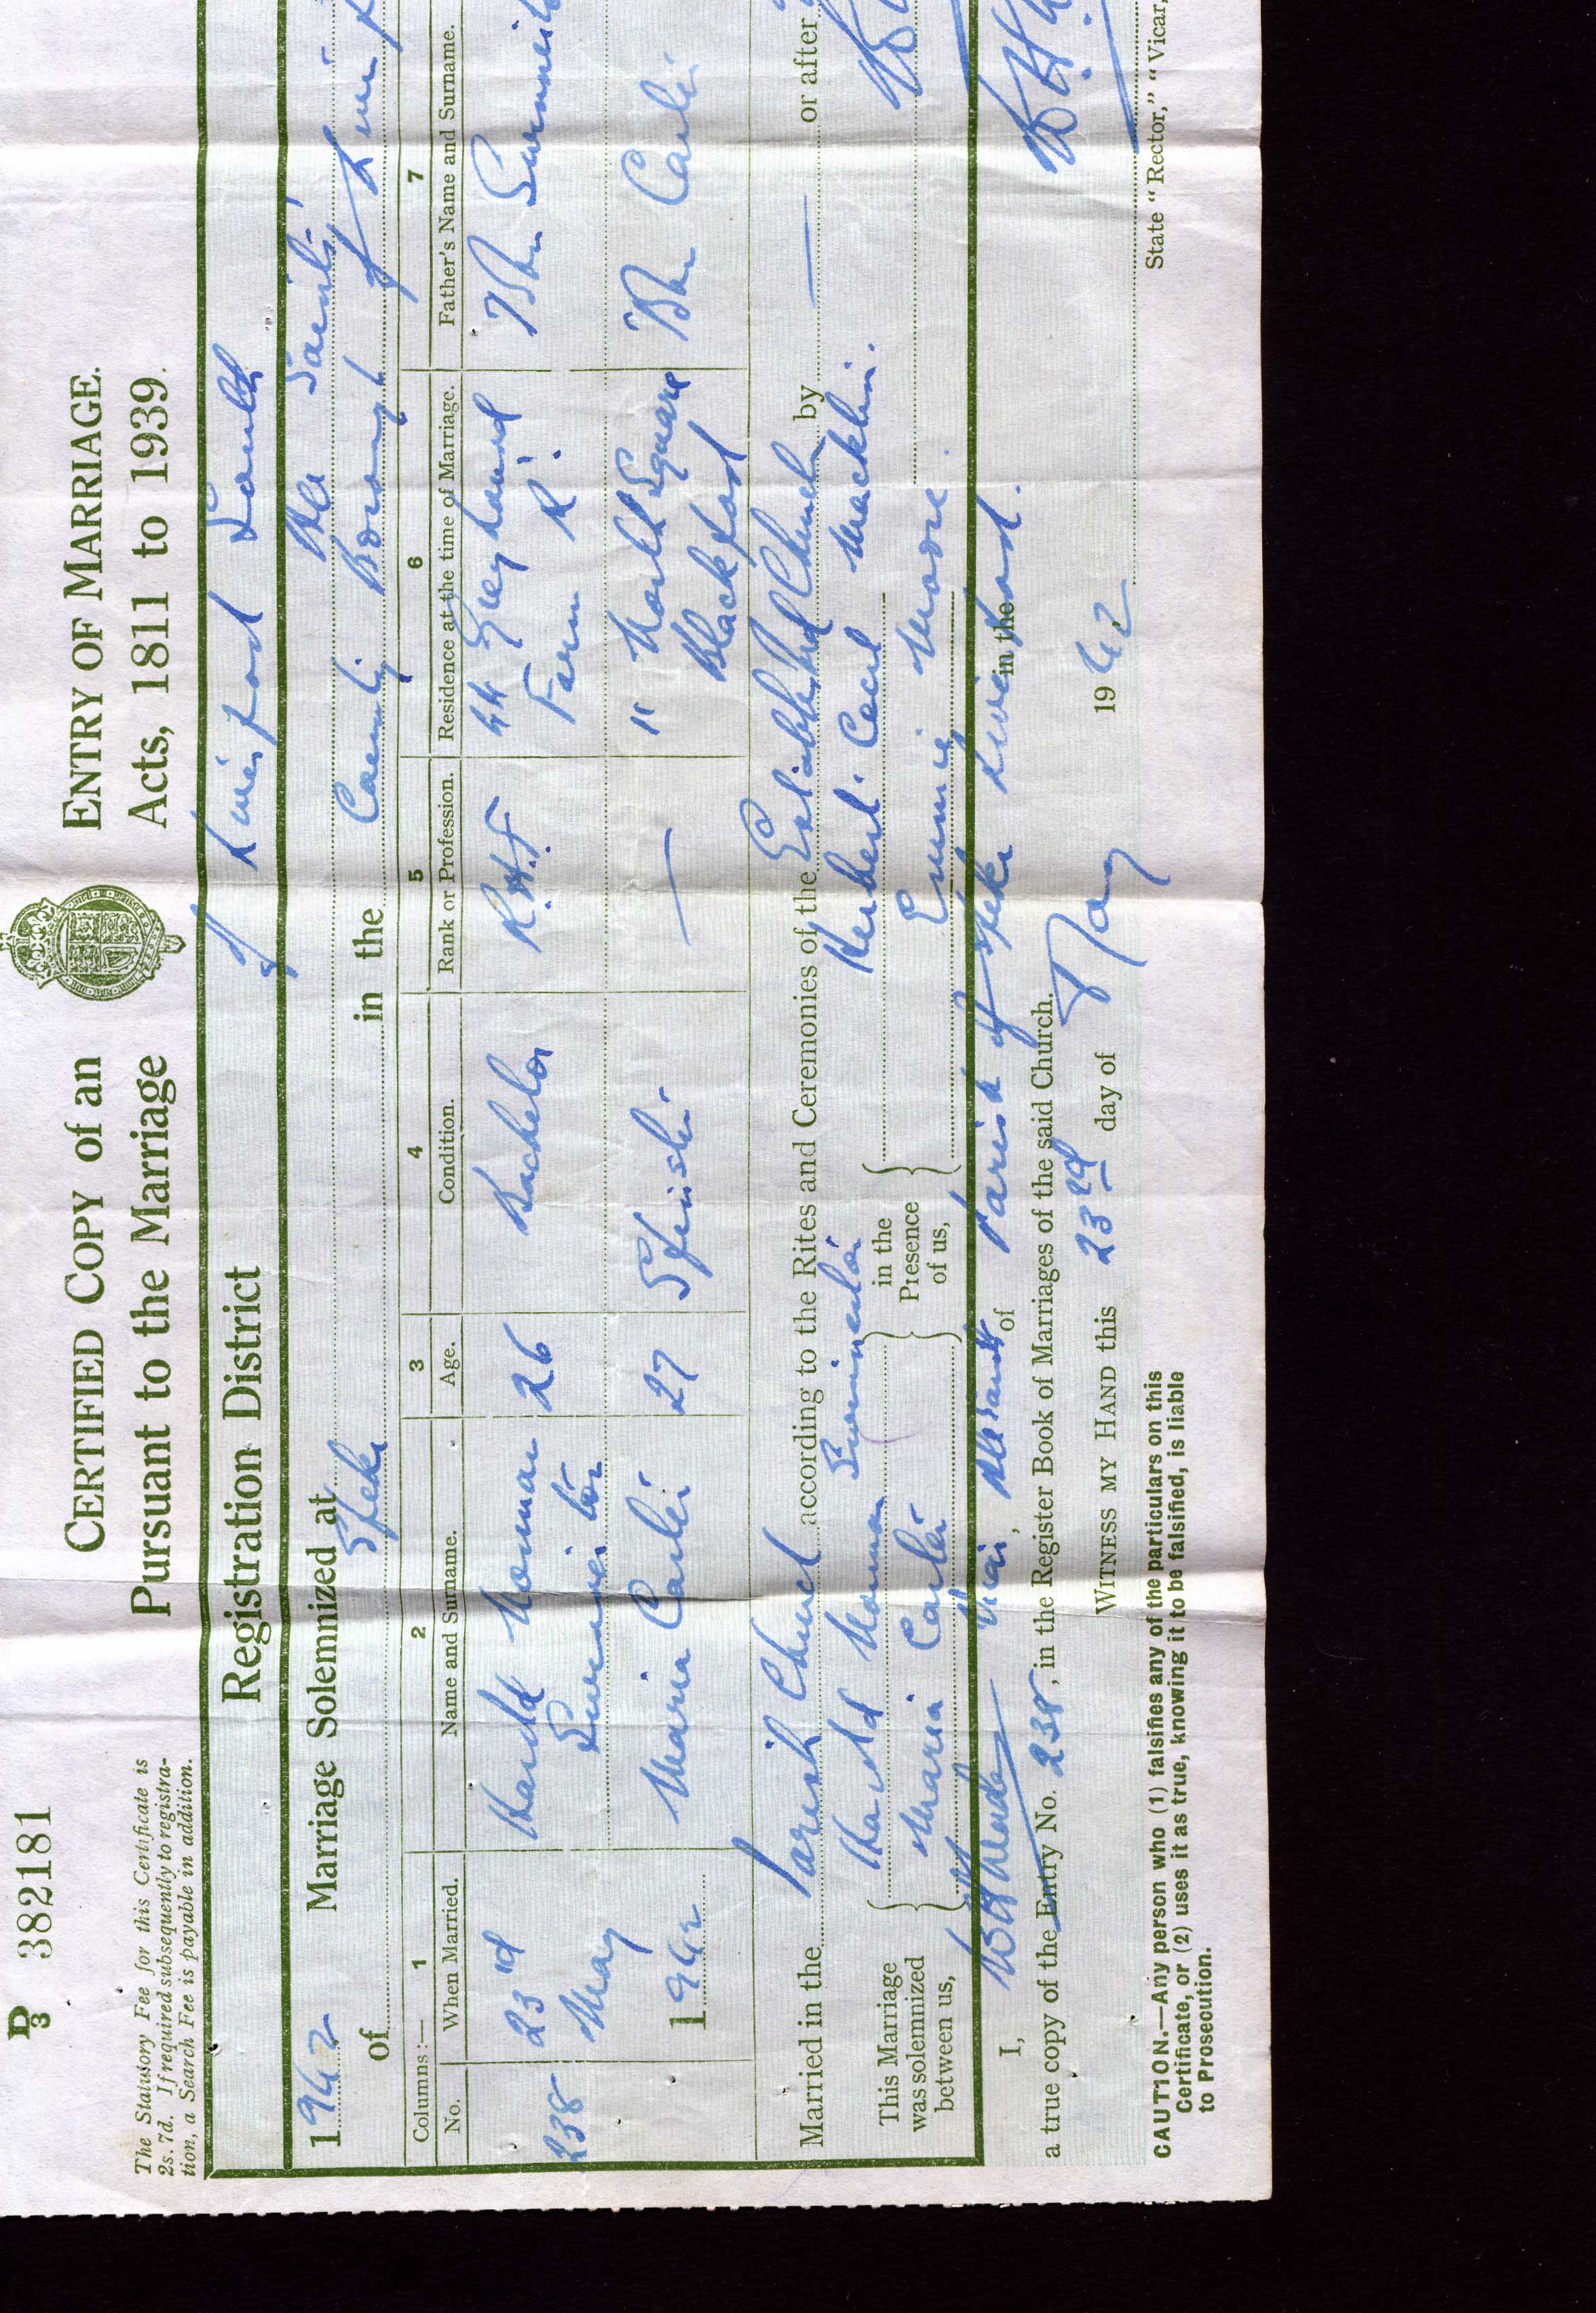 D/3 382181
CERTIFIED COPY of an ENTRY OF MARRIAGE.
Pursuant to the Marriage Acts, 1811 to 1939.
The Statutory Fee for this Certificate is
2s. 7d. If required subsequently to registra-
tion, a Search Fee is payable in addition.
Registration District of Liverpool South
1942 Marriage Solemnized at All Saints
of Speke in the County Borough of
Columns :— 1 2 3 4 5 6 7
No. When Married. Name and Surname. Age. Condition. Rank or Profession. Residence at the time of Marriage. Father's Name and Surname.
238 23rd Harold Norman 26 Bachelor R.A.F 44 Greyhound
May Farm Rd.
1942 Maria Carter 27 Spinster 11 North Square Carter
Blackpool
Married in the Parish Church according to the Rites and Ceremonies of the Established Church by — or after
This Marriage was solemnized between us,
Harold Norman
Maria Carter
in the Presence of us,
Herbert Cecil Macklin.
Emmie Moore.
I, Vicar, of All Saints Parish of Speke in the Liverpool.
a true copy of the Entry No. 238, in the Register Book of Marriages of the said Church.
WITNESS MY HAND this 23rd day of May 1942
CAUTION.—Any person who (1) falsifies any of the particulars on this
Certificate, or (2) uses it as true, knowing it to be falsified, is liable
to Prosecution.
State "Rector," "Vicar,